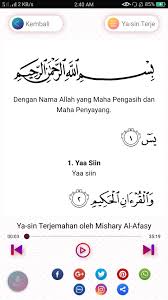 2 KB/s 2:40 AM
Kembali
Ya-sin Terje
بِسْمِ اللَّهِ الرَّحْمَٰنِ الرَّحِيمِ
Dengan Nama Allah yang Maha Pengasih dan
Maha Penyayang.
يسٓ ١
1. Yaa Siin
Yaa siin
وَالْقُرْءَانِ الْحَكِيمِ ٢
00:03 35:19
Ya-sin Terjemahan oleh Mishary Al-Afasy